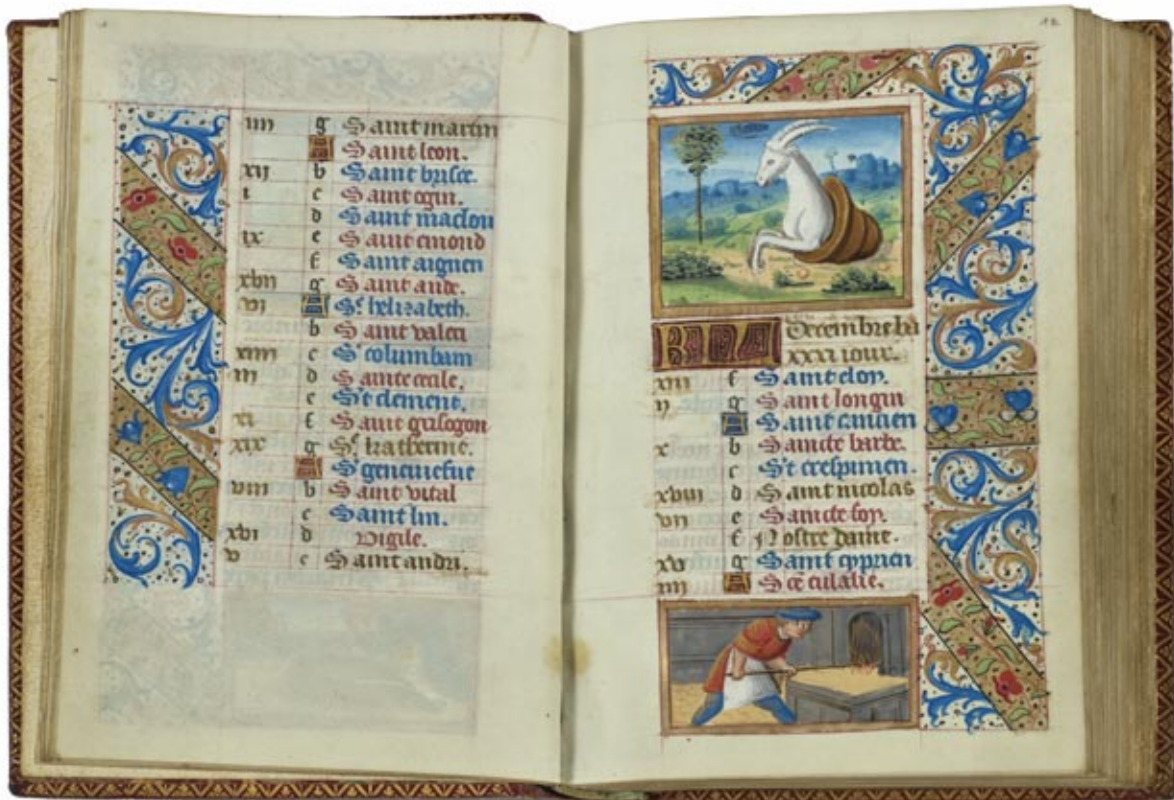 iiii g Saint martin
A Saint leon.
xij b Saint brisce.
i c Saint
d Saint maclou
ix e Saint emond
f Saint aignen
xvii g Saint aude.
vi A Ste helizabeth.
b Saint valeri
xiiii c St columbam
iii d Saincte cecile.
e St clement.
xi f Saint grisogon
xix g Ste katherine.
A Ste geneviefve
viii b Saint vital
c Saint lin.
xvi d Vigile.
v e Saint andri.
12
KL Decembre ha
XXXI iour.
xiii f Saint eloy.
ij g Saint longin
A Saint
x b Saincte barbe.
c St crespinien.
xviii d Saint nicolas
vii e Saincte foy.
f Nostre dame.
xv g Saint cyprien
iiii A Sce eulalie.